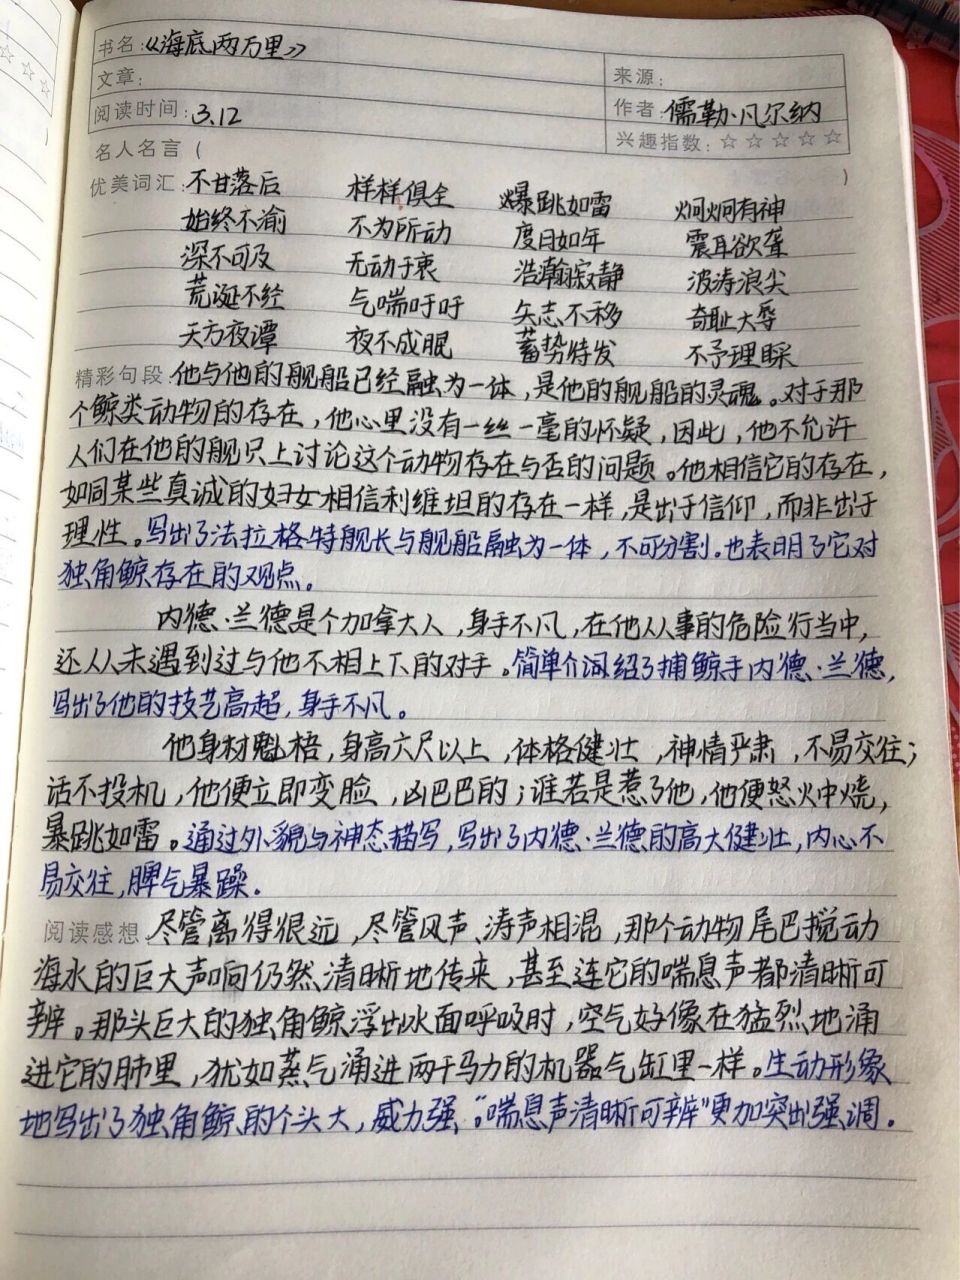 书名:《海底两万里》
文章:
来源:
阅读时间:3.12
作者:儒勒·凡尔纳
名人名言(
兴趣指数:☆☆☆☆☆
)
优美词汇:不甘落后 样样俱全 爆跳如雷 炯炯有神
始终不渝 不为所动 度日如年 震耳欲聋
深不可及 无动于衷 浩瀚寂静 波涛浪尖
荒诞不经 气喘吁吁 矢志不移 奇耻大辱
天方夜谭 夜不成眠 蓄势待发 不予理睬
精彩句段:他与他的舰船已经融为一体,是他的舰船的灵魂。对于那
个鲸类动物的存在,他心里没有一丝一毫的怀疑,因此,他不允许
人们在他的舰只上讨论这个动物存在与否的问题。他相信它的存在,
如同某些真诚的妇女相信利维坦的存在一样,是出于信仰,而非出于
理性。写出了法拉格特舰长与舰船融为一体,不可分割。也表明了它对
独角鲸存在的观点。
内德·兰德是个加拿大人,身手不凡,在他从事的危险行当中,
还从未遇到过与他不相上下的对手。简单介绍了捕鲸手内德·兰德,
写出了他的技艺高超,身手不凡。
他身材魁梧,身高六尺以上,体格健壮,神情严肃,不易交往;
话不投机,他便立即变脸,凶巴巴的;谁若是惹了他,他便怒火中烧,
暴跳如雷。通过外貌与神态描写,写出了内德·兰德的高大健壮,内心不
易交往,脾气暴躁.
阅读感想 尽管离得很远,尽管风声、涛声相混,那个动物尾巴搅动
海水的巨大声响仍然清晰地传来,甚至连它的喘息声都清晰可
辨。那头巨大的独角鲸浮出水面呼吸时,空气好像在猛烈地涌
进它的肺里,犹如蒸气涌进两千马力的机器气缸里一样。生动形象
地写出了独角鲸的个头大,威力强。“喘息声清晰可辨”更加突出强调。